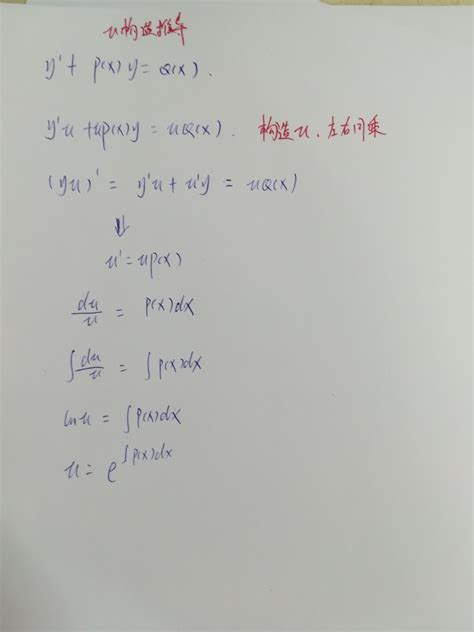 u构造推导
y' + p(x) y = Q(x).
y'u + up(x)y = uQ(x). 构造u, 左右同乘
(yu)' = y'u + u'y = uQ(x)
⇓
u' = up(x)
du/u = p(x)dx
∫ du/u = ∫ p(x)dx
ln u = ∫ p(x)dx
u = e^∫p(x)dx